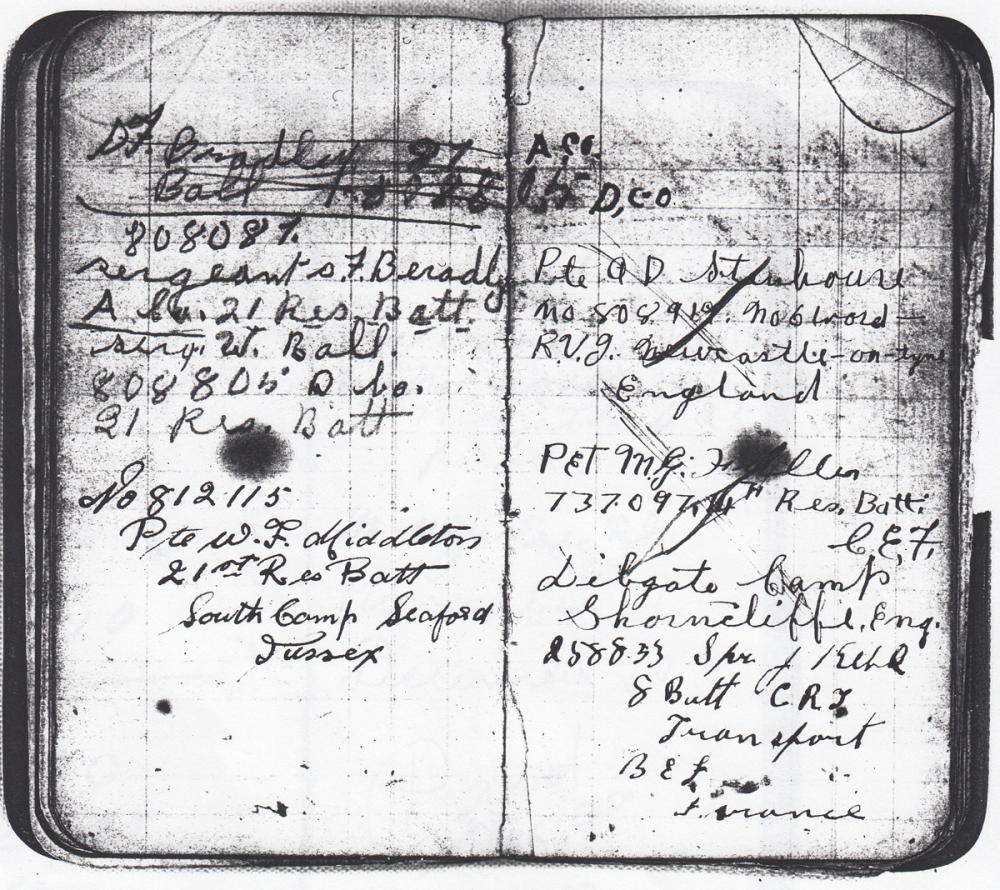 Bradley 21 A Co.
Ball D, Co
808087.
sergeant S. F. Beradly
A Co. 21 Res. Batt.
serg. W. Ball.
808805 D Co.
21 Res. Batt
No 812115
Pte W. F. Middleton
21st Res Batt
South Camp Seaford
Sussex
Pte A D Stenhouse
No 808919. No 6 word
R.V.I. Newcastle-on-tyne
England
Pet M.G.
737097. 14th Res. Batt.
C.E.F.
Dibgate Camp
Shorncliffe, Eng.
258833 Spr J
8 Batt C R T
Transport
B E F
France